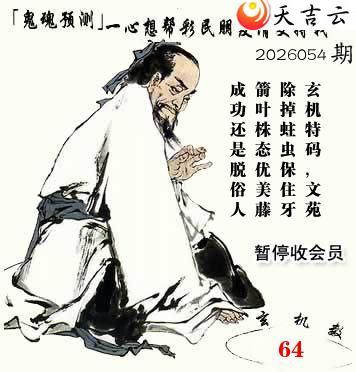 天吉云
「鬼魂预测」一心想帮彩民朋
2026054期
玄机特码，文苑
除掉蛀虫保住牙
箭叶株态优美藤
成功还是脱俗人
暂停收会员
玄机数
64